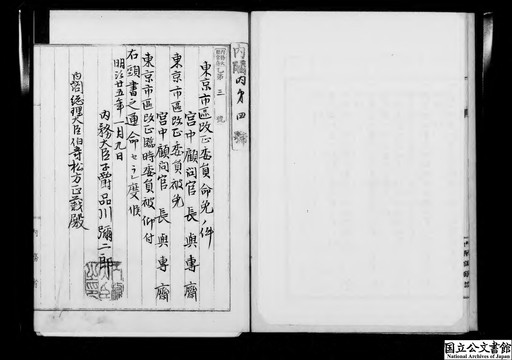 内閣
内第四號
第三號
東京市區改正委員命免ノ件
宮中顧問官 長與專齋
東京市區改正委員被免
宮中顧問官 長與專齋
東京市區改正臨時委員被仰付
右頭書之通命セラレ度候
明治廿五年一月九日
内務大臣子爵品川彌二郎
内閣総理大臣伯爵松方正義殿
国立公文書館
National Archives of Japan